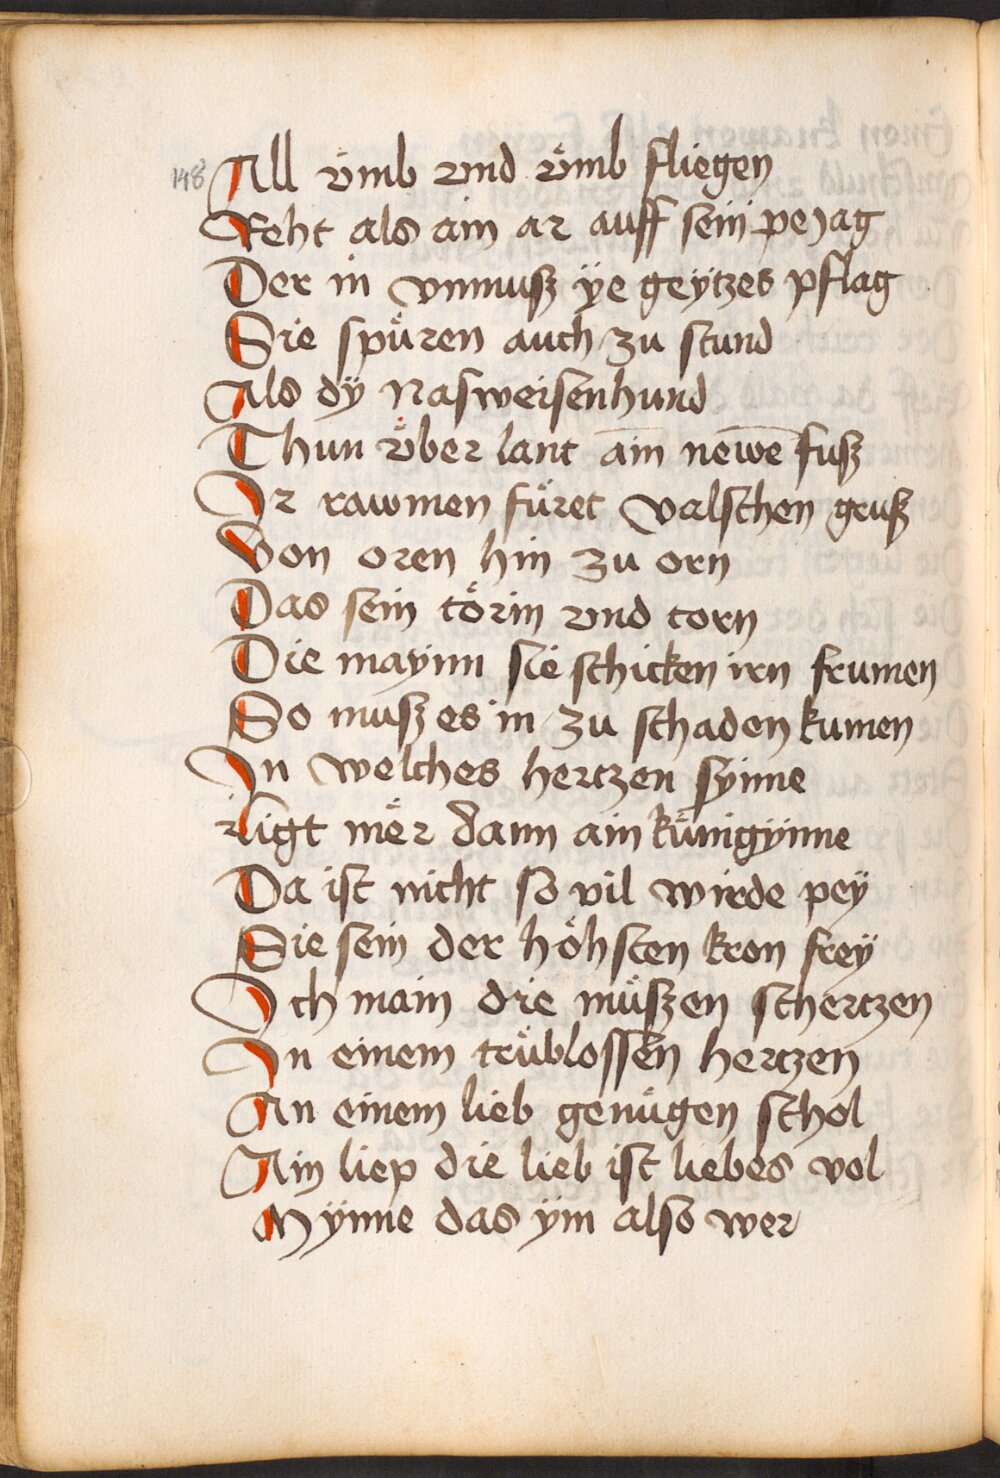 148 All vͤmb vnd vͤmb fliegen
Reht als ain ar auff sein peyag
Der in vnmusz ÿe geytzes pflag
Sie spuͤren auch zu stund
Als dÿ Nasweisenhund
Thun vͤber lant ain newe fusz
Ir rawmen fuͤret valschen grusz
Von oren hin zu orn
Das sein toͤrin vnd torn
Die maynn sie schicken irn frumen
So musz es in zu schaden kumen
In welches hertzen synne
ligt meͤr dann ain kuͤnigynne
Da ist nicht so vil wirde peÿ
Sie sein der hoͤhsten kron freÿ
Ich main die muͤszen schertzen
In einem truͤblossen hertzen
An einem lieb genuͤgen schol
Ain liep die lieb ist liebes vol
Mÿnne das ÿm also wer